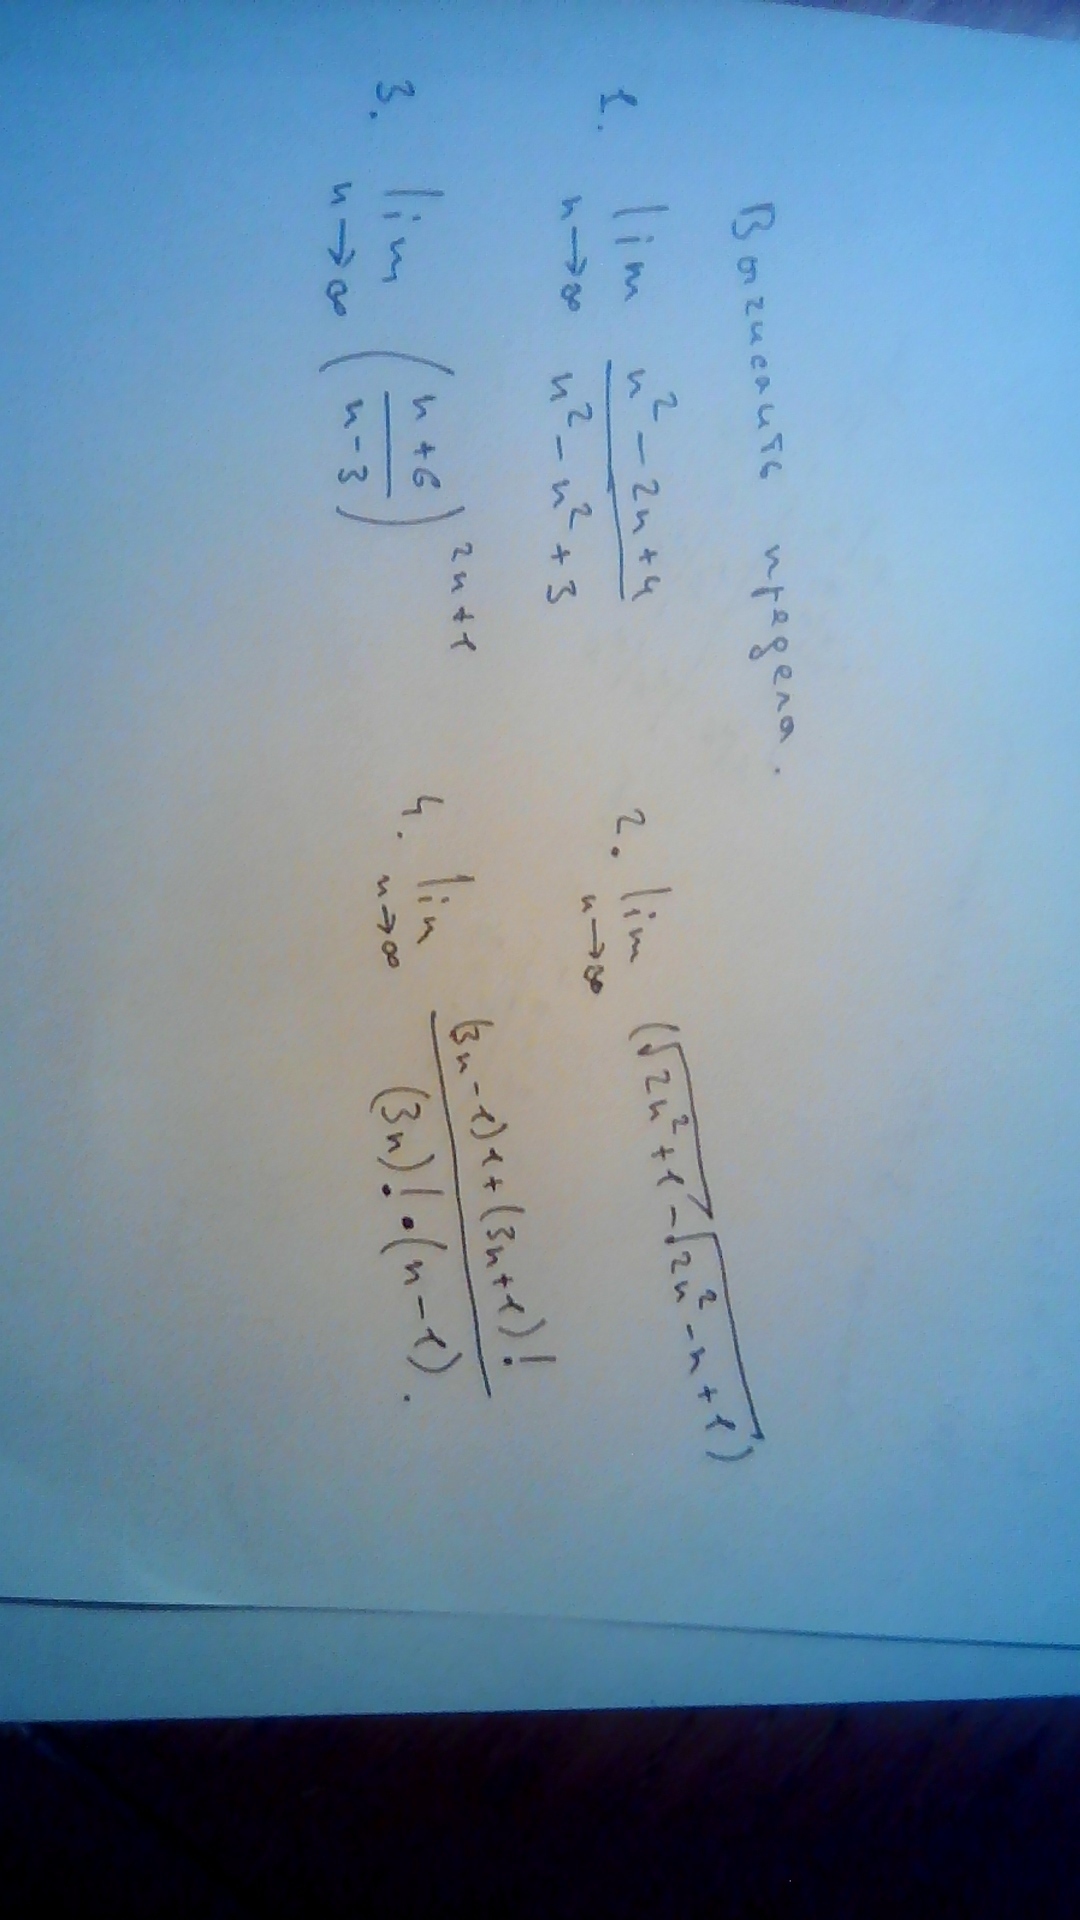 Вычислить предела.
1. lim n→∞ (n² - 2n + 4)/(n² - n² + 3) 2. lim n→∞ (√(2n² + 1) - √(2n² - n + 1))
3. lim n→∞ ((n + 6)/(n - 3))^(2n + 1) 4. lim n→∞ ((3n - 1) 1 + (3n + 1)!)/((3n)! · (n - 1)).